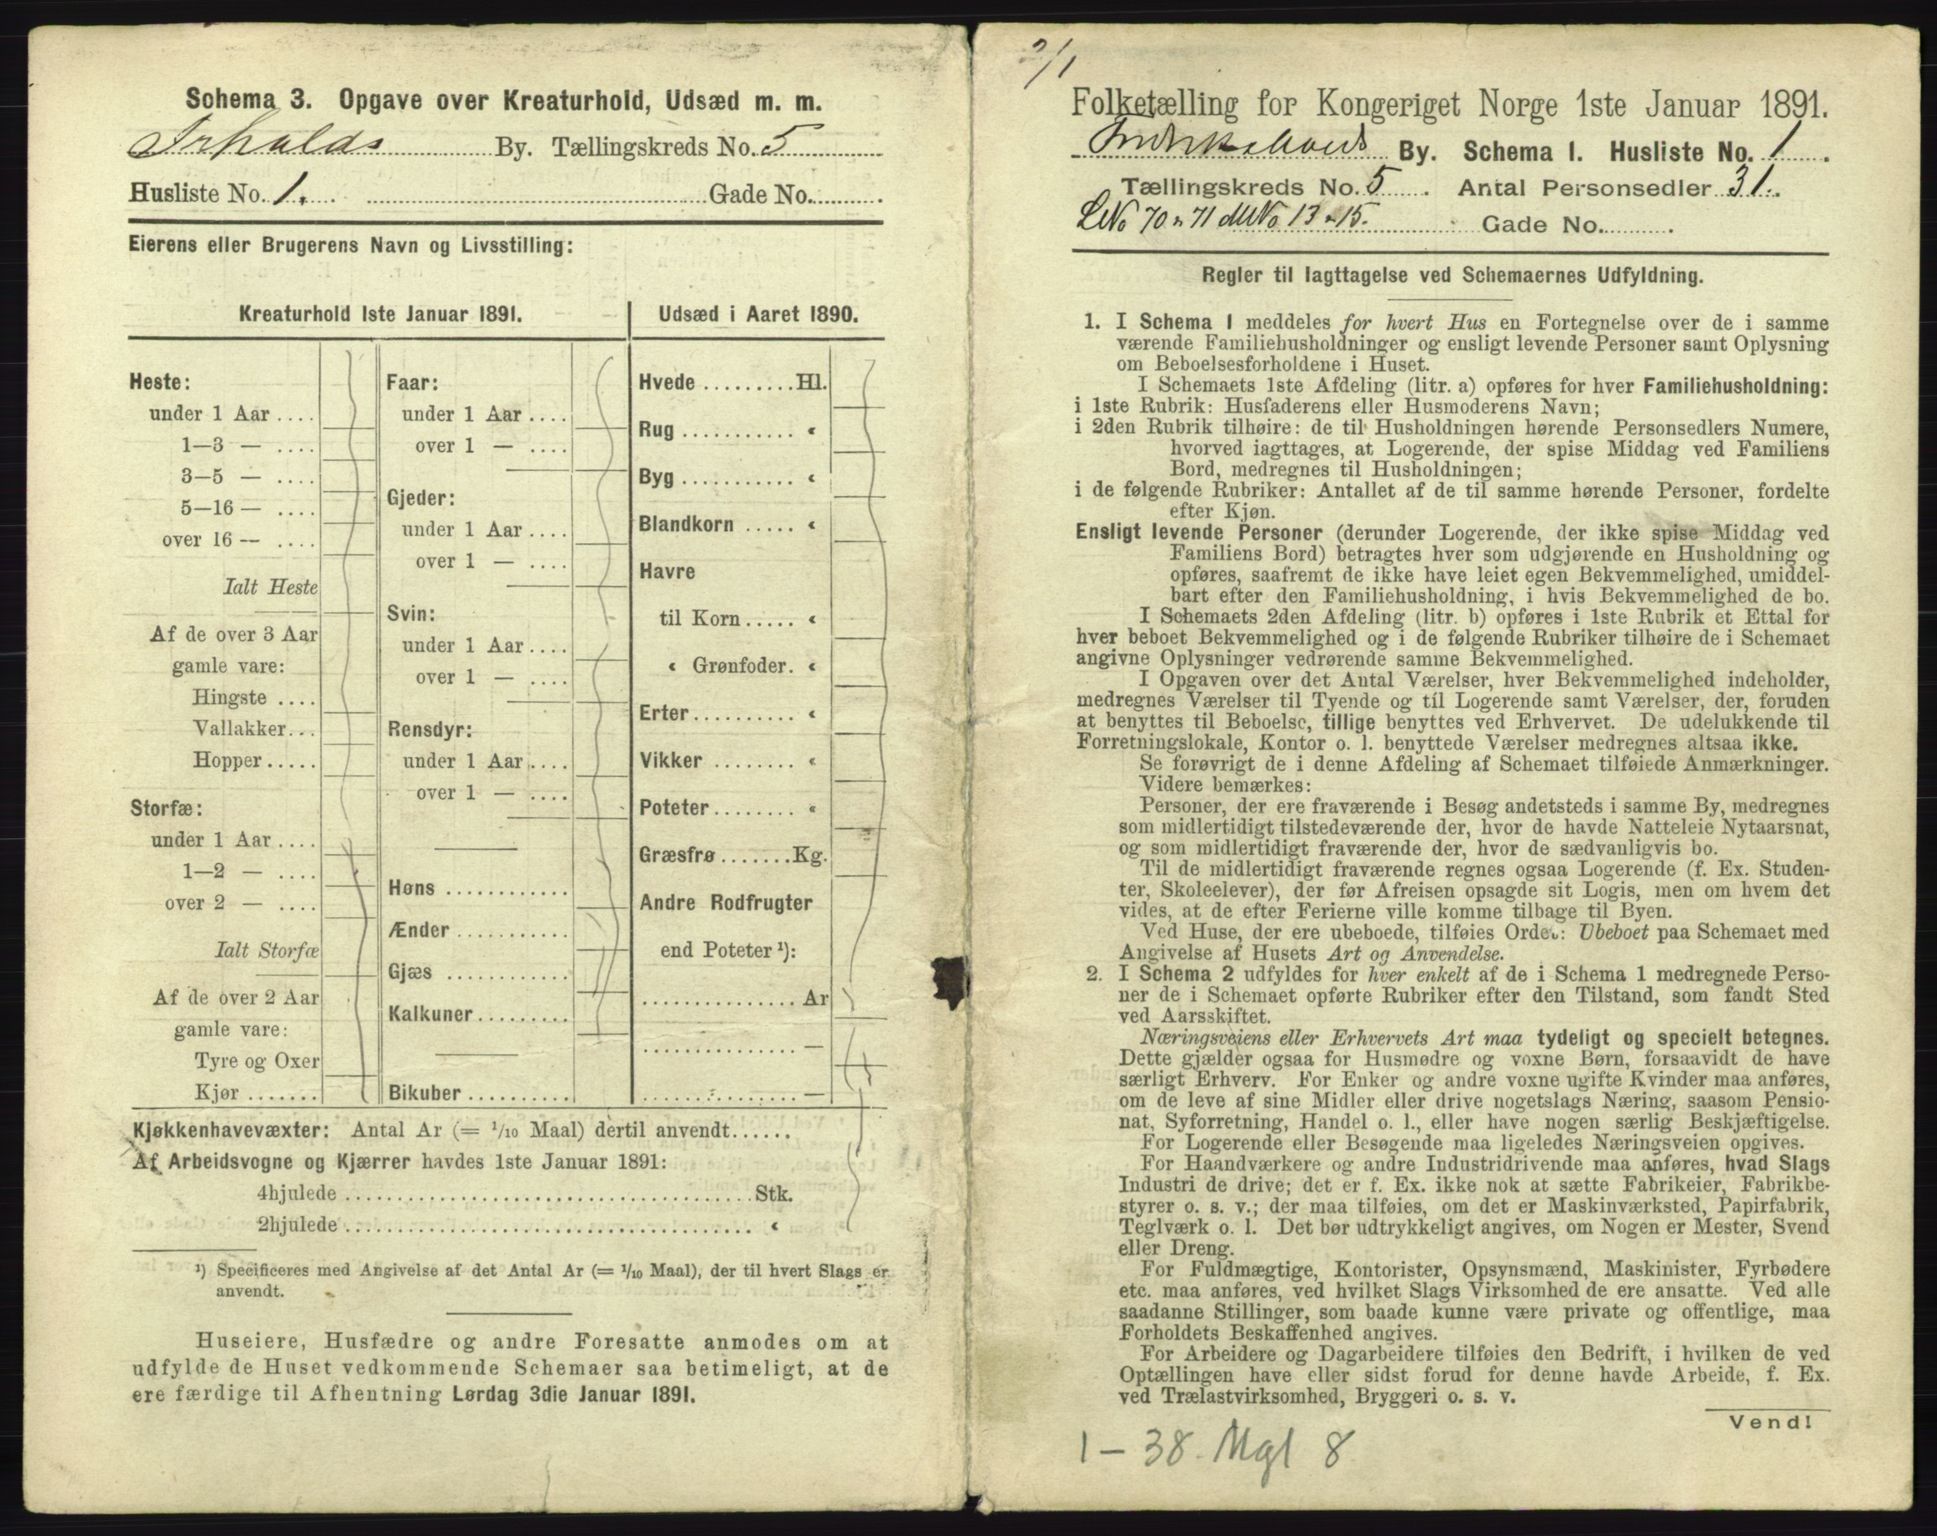 Schema 3. Opgave over Kreaturhold, Udsæd m. m.
Frhalds By. Tællingskreds No. 5
Husliste No. 1. Gade No.
Eierens eller Brugerens Navn og Livsstilling:
Kreaturhold 1ste Januar 1891.
Heste:
under 1 Aar ....
1—3 — ....
3—5 — ....
5—16 — ....
over 16 — ....
Ialt Heste
Af de over 3 Aar
gamle vare:
Hingste ....
Vallakker...
Hopper.....
Storfæ:
under 1 Aar ....
1—2 — ....
over 2 — ....
Ialt Storfæ
Af de over 2 Aar
gamle vare:
Tyre og Oxer
Kjør .......
Faar:
under 1 Aar ....
over 1 — ....
Gjeder:
under 1 Aar ....
over 1 — ....
Svin:
under 1 Aar ....
over 1 — ....
Rensdyr:
under 1 Aar ....
over 1 — ....
Høns ...........
Ænder ...........
Gjæs ...........
Kalkuner.........
Bikuber ..........
Udsæd i Aaret 1890.
Hvede .........Hl.
Rug ........... «
Byg ........... «
Blandkorn ..... «
Havre
til Korn ..... «
« Grønfoder. «
Erter.......... «
Vikker ........ «
Poteter........ «
Græsfrø .......Kg.
Andre Rodfrugter
end Poteter ¹):
............... Ar
............... —
............... —
Kjøkkenhavevæxter: Antal Ar (= 1/10 Maal) dertil anvendt......
Af Arbeidsvogne og Kjærrer havdes 1ste Januar 1891:
4hjulede ........................................ Stk.
2hjulede ........................................ «
¹) Specificeres med Angivelse af det Antal Ar (= 1/10 Maal), der til hvert Slags er
anvendt.
Huseiere, Husfædre og andre Foresatte anmodes om at
udfylde de Huset vedkommende Schemaer saa betimeligt, at de
ere færdige til Afhentning Lørdag 3die Januar 1891.
2/1
Folketælling for Kongeriget Norge 1ste Januar 1891.
Fredrikshalds By. Schema I. Husliste No. 1.
Tællingskreds No. 5. Antal Personsedler 31.
LNo 70 " 71 MNo 13 " 15. Gade No.
Regler til Iagttagelse ved Schemaernes Udfyldning.
1. I Schema I meddeles for hvert Hus en Fortegnelse over de i samme
værende Familiehusholdninger og ensligt levende Personer samt Oplysning
om Beboelsesforholdene i Huset.
I Schemaets 1ste Afdeling (litr. a) opføres for hver Familiehusholdning:
i 1ste Rubrik: Husfaderens eller Husmoderens Navn;
i 2den Rubrik tilhøire: de til Husholdningen hørende Personsedlers Numere,
hvorved iagttages, at Logerende, der spise Middag ved Familiens
Bord, medregnes til Husholdningen;
i de følgende Rubriker: Antallet af de til samme hørende Personer, fordelte
efter Kjøn.
Ensligt levende Personer (derunder Logerende, der ikke spise Middag ved
Familiens Bord) betragtes hver som udgjørende en Husholdning og
opføres, saafremt de ikke have leiet egen Bekvemmelighed, umiddel-
bart efter den Familiehusholdning, i hvis Bekvemmelighed de bo.
I Schemaets 2den Afdeling (litr. b) opføres i 1ste Rubrik et Ettal for
hver beboet Bekvemmelighed og i de følgende Rubriker tilhøire de i Schemaet
angivne Oplysninger vedrørende samme Bekvemmelighed.
I Opgaven over det Antal Værelser, hver Bekvemmelighed indeholder,
medregnes Værelser til Tyende og til Logerende samt Værelser, der, foruden
at benyttes til Beboelse, tillige benyttes ved Erhvervet. De udelukkende til
Forretningslokale, Kontor o. l. benyttede Værelser medregnes altsaa ikke.
Se forøvrigt de i denne Afdeling af Schemaet tilføiede Anmærkninger.
Videre bemærkes:
Personer, der ere fraværende i Besøg andetsteds i samme By, medregnes
som midlertidigt tilstedeværende der, hvor de havde Natteleie Nytaarsnat,
og som midlertidigt fraværende der, hvor de sædvanligvis bo.
Til de midlertidigt fraværende regnes ogsaa Logerende (f. Ex. Studen-
ter, Skoleelever), der før Afreisen opsagde sit Logis, men om hvem det
vides, at de efter Ferierne ville komme tilbage til Byen.
Ved Huse, der ere ubeboede, tilføies Ordet: Ubeboet paa Schemaet med
Angivelse af Husets Art og Anvendelse.
2. I Schema 2 udfyldes for hver enkelt af de i Schema 1 medregnede Perso-
ner de i Schemaet opførte Rubriker efter den Tilstand, som fandt Sted
ved Aarsskiftet.
Næringsveiens eller Erhvervets Art maa tydeligt og specielt betegnes.
Dette gjælder ogsaa for Husmødre og voxne Børn, forsaavidt de have
særligt Erhverv. For Enker og andre voxne ugifte Kvinder maa anføres,
om de leve af sine Midler eller drive nogetslags Næring, saasom Pensio-
nat, Syforretning, Handel o. l., eller have nogen særlig Beskjæftigelse.
For Logerende eller Besøgende maa ligeledes Næringsveien opgives.
For Haandværkere og andre Industridrivende maa anføres, hvad Slags
Industri de drive; det er f. Ex. ikke nok at sætte Fabrikeier, Fabrikbe-
styrer o. s. v.; der maa tilføies, om det er Maskinværksted, Papirfabrik,
Teglværk o. l. Det bør udtrykkeligt angives, om Nogen er Mester, Svend
eller Dreng.
For Fuldmægtige, Kontorister, Opsynsmænd, Maskinister, Fyrbødere
etc. maa anføres, ved hvilket Slags Virksomhed de ere ansatte. Ved alle
saadanne Stillinger, som baade kunne være private og offentlige, maa
Forholdets Beskaffenhed angives.
For Arbeidere og Dagarbeidere tilføies den Bedrift, i hvilken de ved
Optællingen have eller sidst forud for denne havde Arbeide, f. Ex.
ved Trælastvirksomhed, Bryggeri o. s. v.
Vend!
1 — 38. Mgl 8